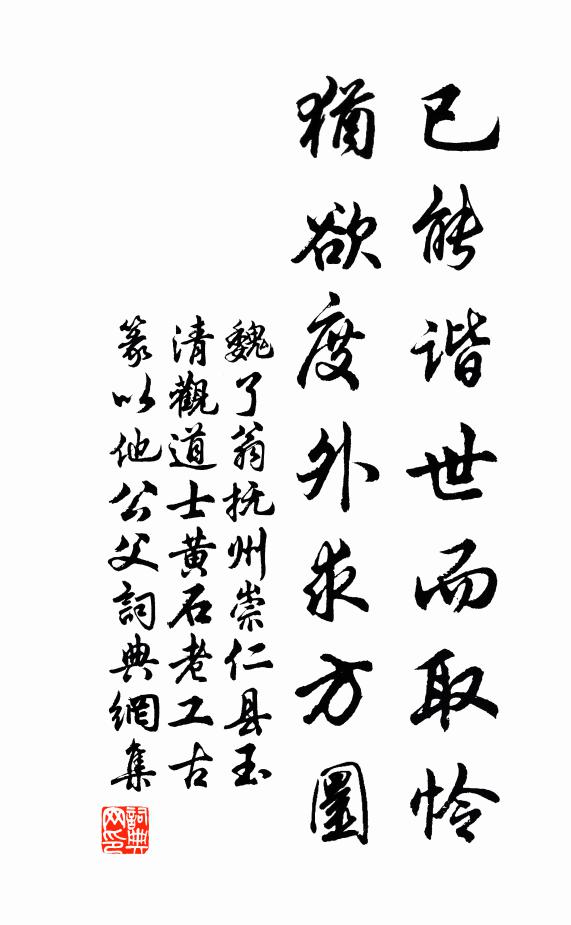 已能谐世而取怜
猶欲度外求方圓
魏了翁抚州崇仁县玉
清觀道士黄石老工古
篆以他公父詞典網集
詞典
网印